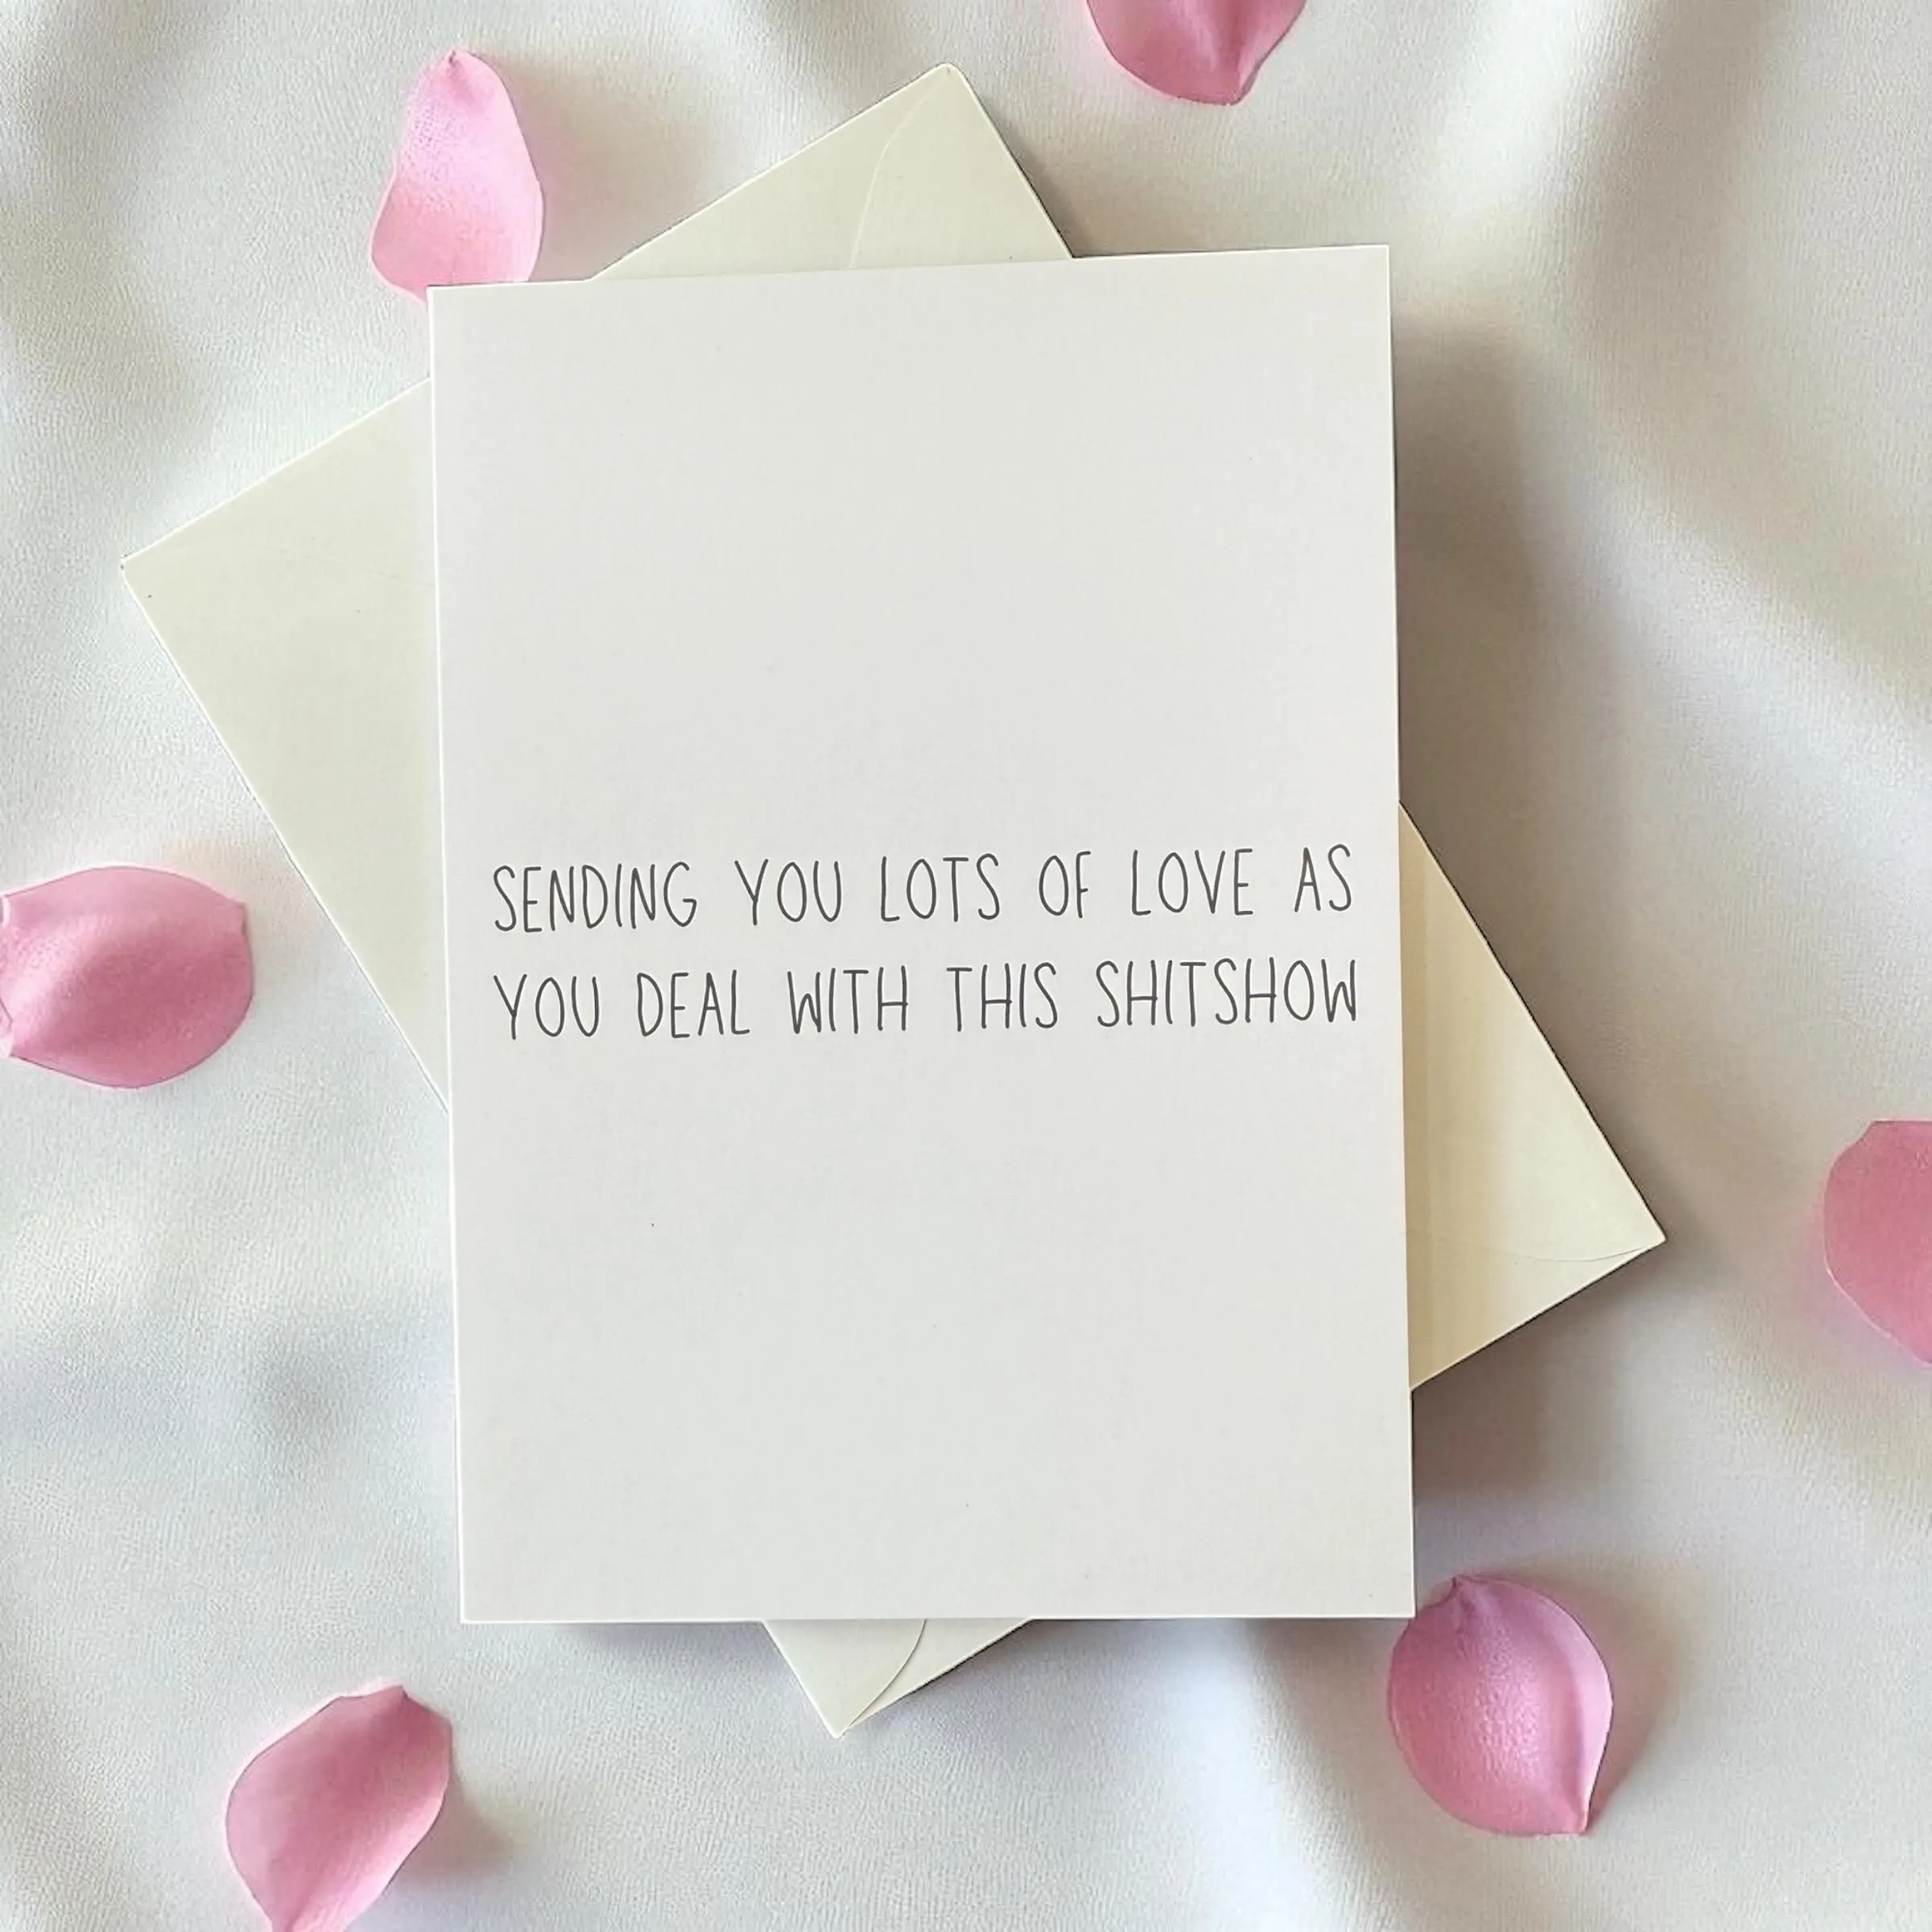 SENDING YOU LOTS OF LOVE AS
YOU DEAL WITH THIS SHITSHOW